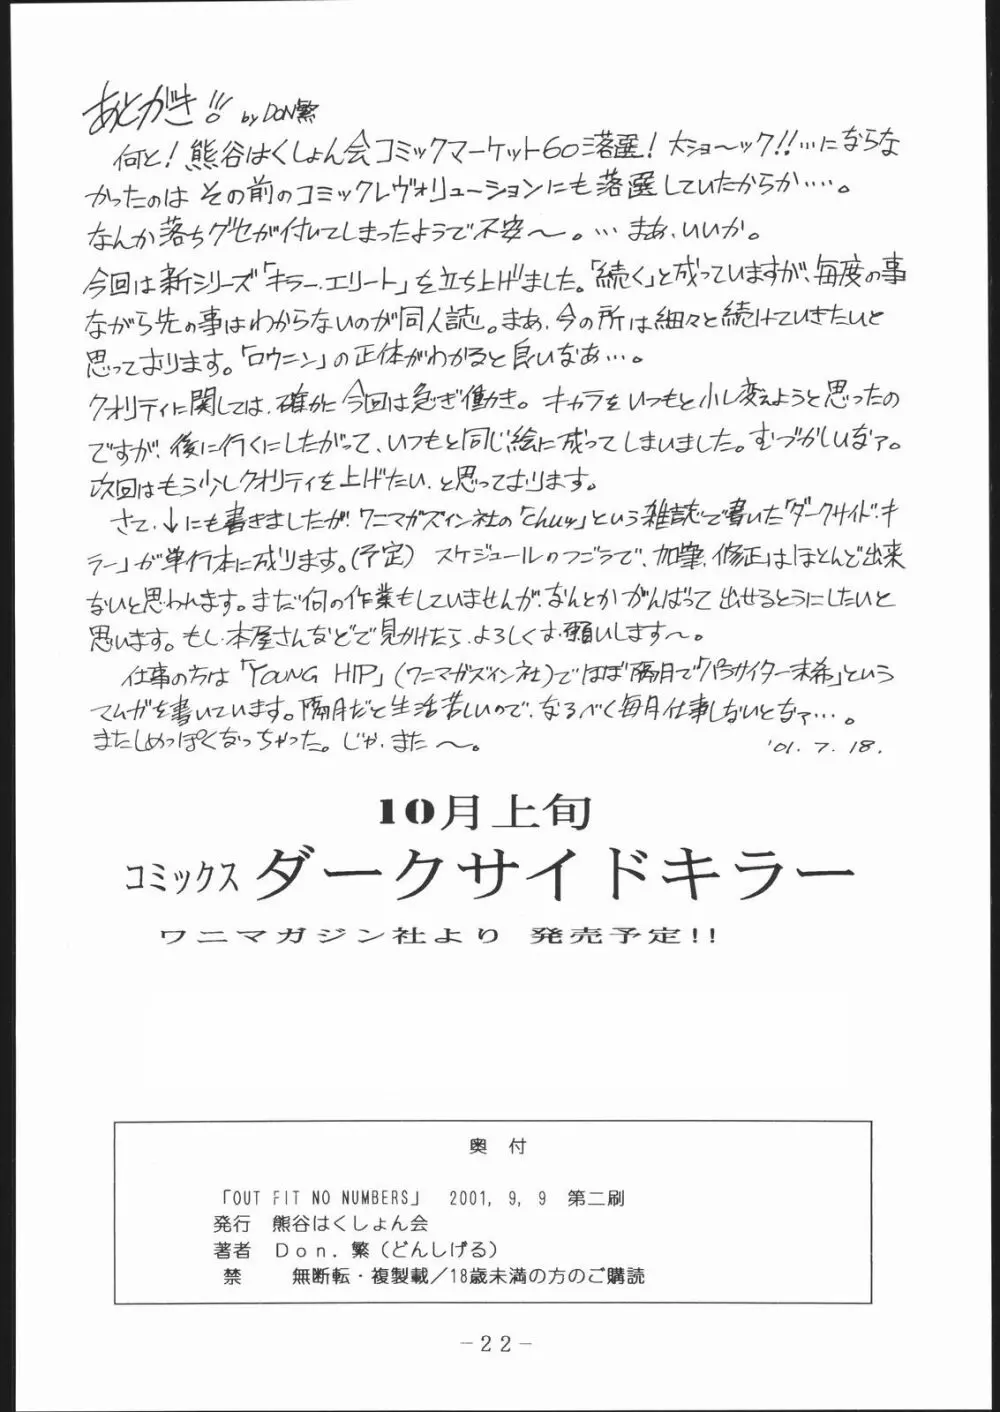 あとがき!! by DON繁
何と！熊谷はくしょん会コミックマーケット60落選！大ショ〜ック!!…にならな
かったのは その前のコミックレヴォリューションにも落選していたからか‥‥。
なんか落ちグセが付いてしまったようで不安〜。…まあ、いいか。
今回は新シリーズ「キラー・エリート」を立ち上げました。「続く」と成っていますが、毎度の事
ながら先の事はわからないのが同人誌。まあ、今の所は細々と続けていきたいと
思っております。「ロウニン」の正体がわかると良いなあ…。
クオリティに関しては、確かに今回は急ぎ働き。キャラをいつもと少し変えようと思ったの
ですが、後に行くにしたがって、いつもと同じ絵に成ってしまいました。むづかしいなァ。
次回はもう少しクオリティを上げたい、と思っております。
さて、↓にも書きましたが、ワニマガズィン社の「chuッ」という雑誌で書いた「ダークサイド・キ
ラー」が単行本に成ります。(予定) スケジュールのつごうで、加筆、修正はほとんど出来
ないと思われます。まだ何の作業もしていませんが、なんとかがんばって出せるようにしたいと
思います。もし、本屋さんなどで見かけたら、よろしくお願いします〜。
仕事の方は「YOUNG HIP」(ワニマガズィン社)でほぼ隔月で「パラサイター未希」という
マンガを書いています。隔月だと生活苦しいので、なるべく毎月仕事しないとなァ…。
またしめっぽくなっちゃった。じゃ、また〜。 '01.7.18.
10月上旬
コミックス ダークサイドキラー
ワニマガジン社より 発売予定!!
奥 付
「OUT FIT NO NUMBERS」 2001, 9, 9 第二刷
発行 熊谷はくしょん会
著者 Ｄｏｎ．繁（どんしげる）
禁 無断転・複製載／18歳未満の方のご購読
－22－